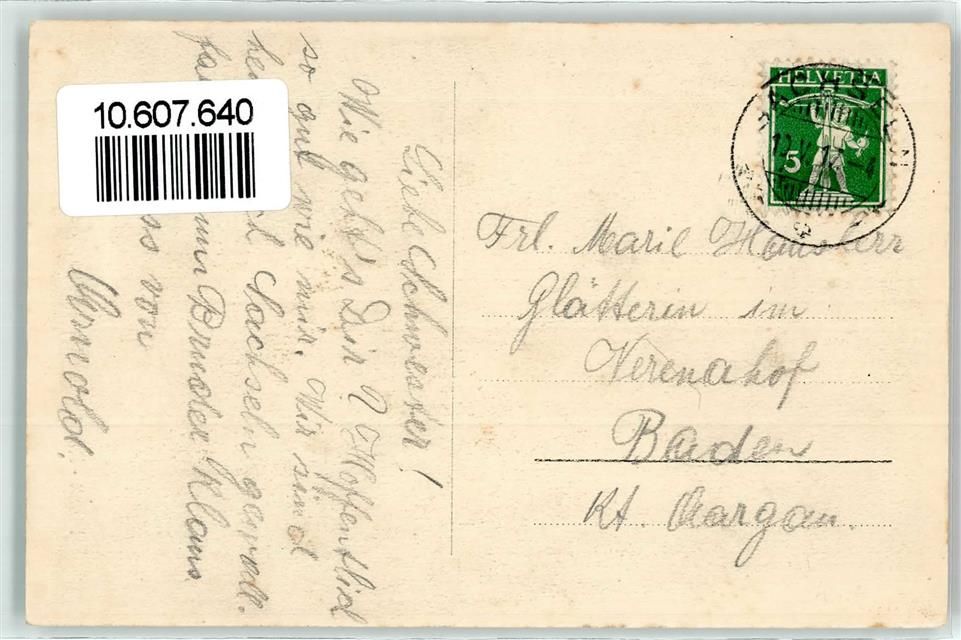 10.607.640
Liebe Schwester!
Wie geht's Dir? Hoffentlich
so gut wie mir. Wir sind
Sachseln
Bruder Klaus
von
Arnold.
HELVETIA
5
Frl. Marie
Glätterin im
Verenahof
Baden
Kt. Aargau.